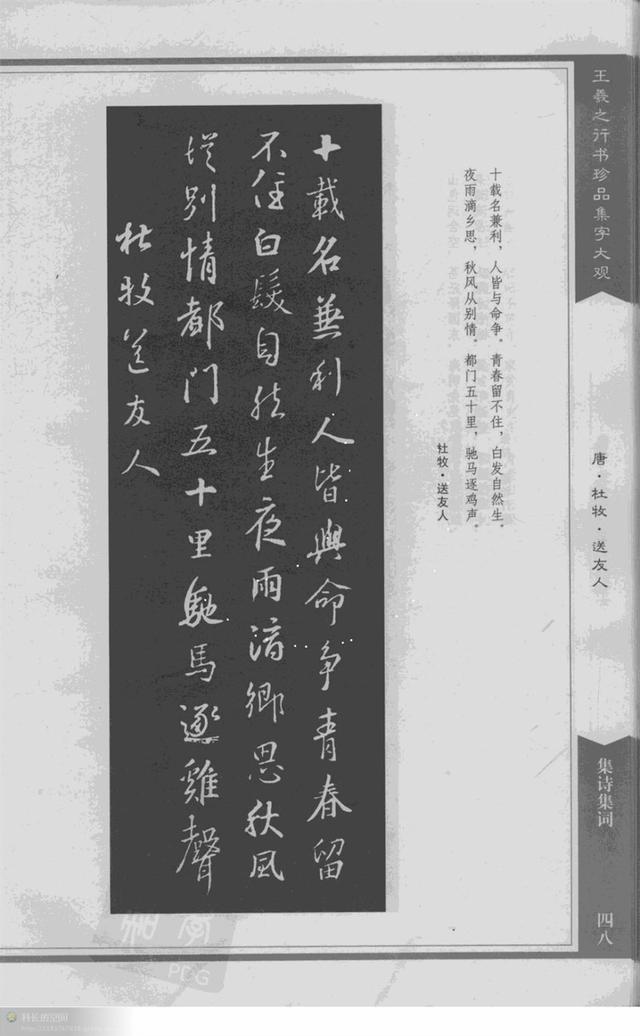 王羲之行书珍品集字大观
唐·杜牧·送友人
集诗集词
四八
十载名兼利，人皆与命争。青春留不住，白发自然生。
夜雨滴乡思，秋风从别情。都门五十里，驰马逐鸡声。
杜牧·送友人
十載名蒹利人皆與命争青春留
不住白髮自然生夜雨滴鄉思秋風
從別情都门五十里馳馬逐雞聲
杜牧送友人
PDG
科长的空间